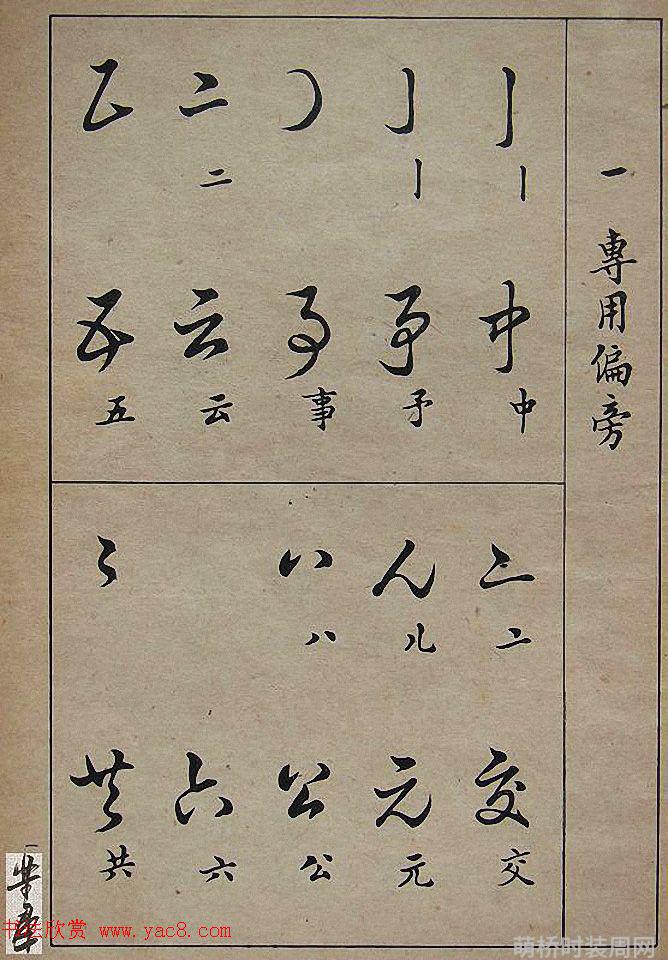 一 專用偏旁
亅 亅
中 中
亅 亅
予 予
事 事
二 二
云 云
五 五
亠 亠
交 交
儿 儿
元 元
八 八
公 公
六 六
共 共
一
书法欣赏 www.yac8.com
萌桥时装周网